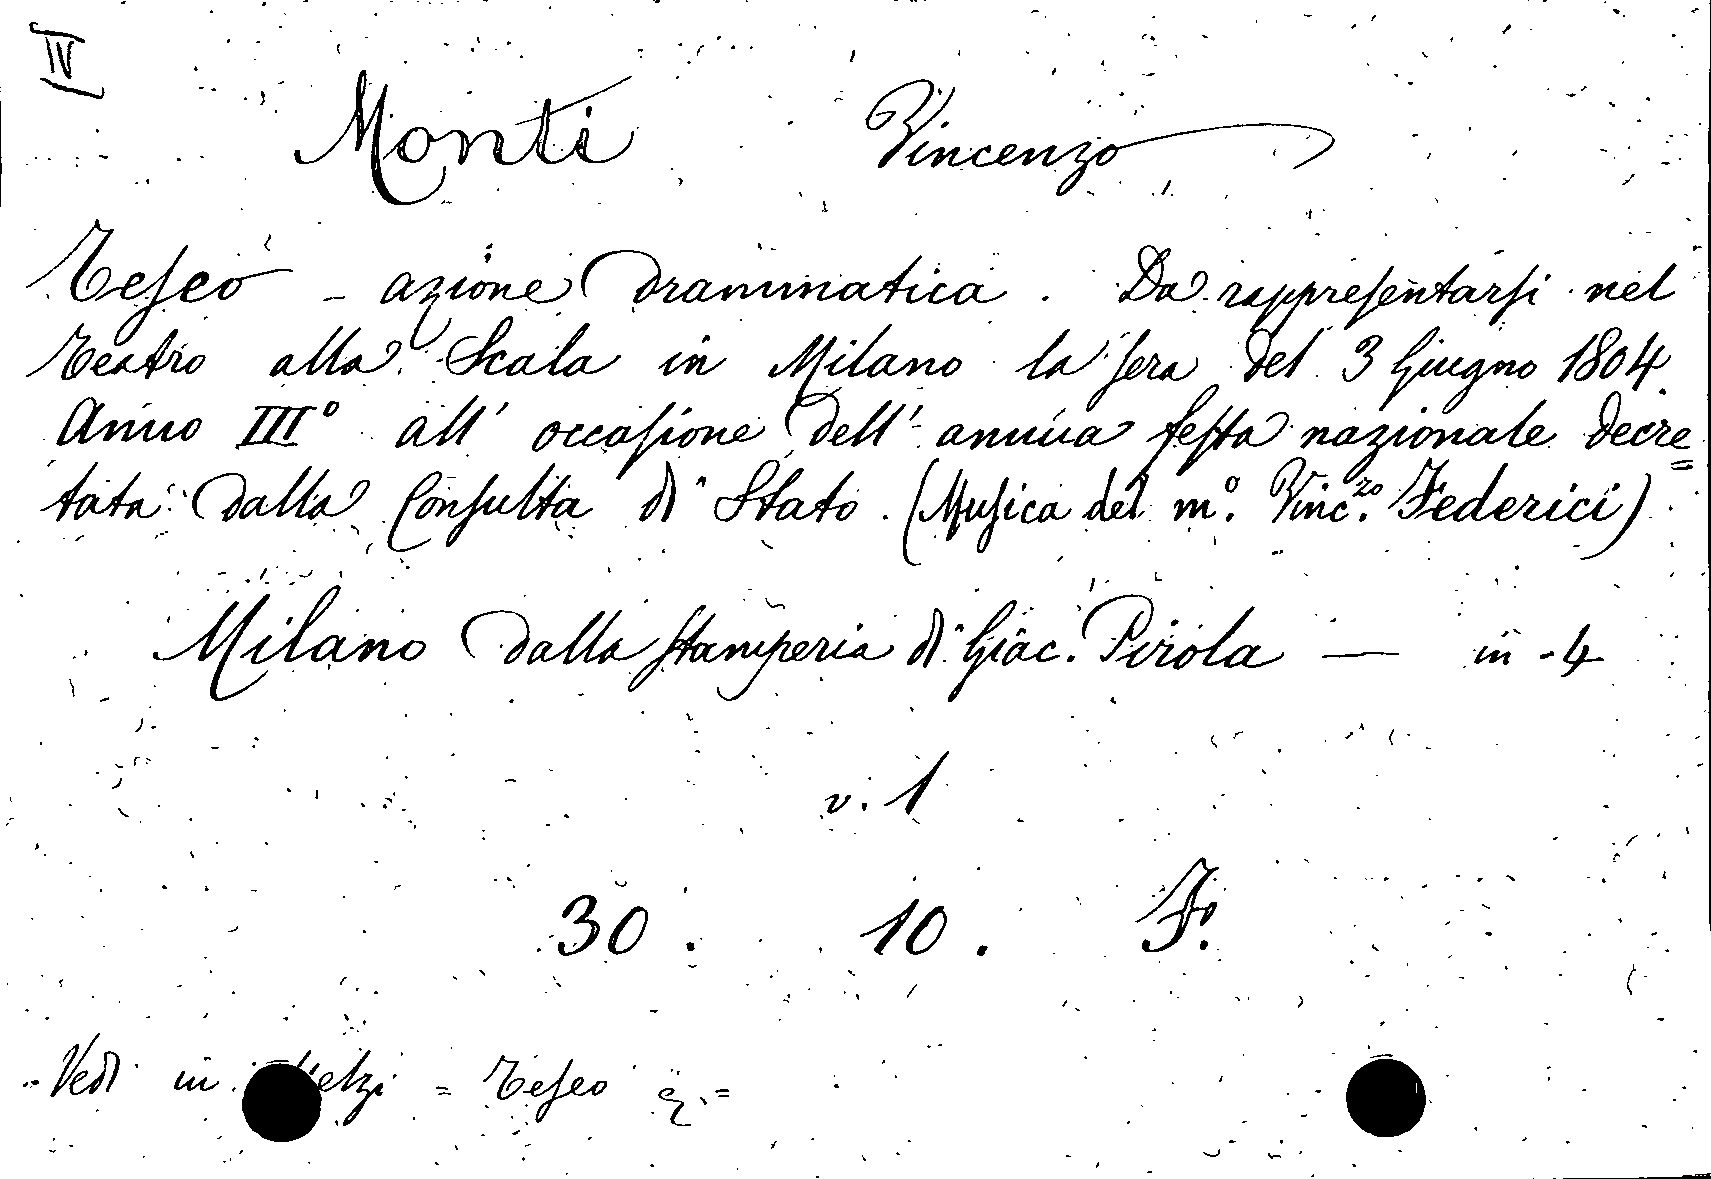 IV
Monti Vincenzo
Teseo - azione drammatica. Da rappresentarsi nel
teatro alla Scala in Milano la sera del 3 Giugno 1804
Anno III° all' occasione dell' annua festa nazionale decre=
tata dalla Consulta di Stato. (Musica del m°. Vinc.zo Federici)
Milano dalla stamperia di Giac. Pirola — in-4
v. 1
30. 10. F°.
Vedi in = Teseo =